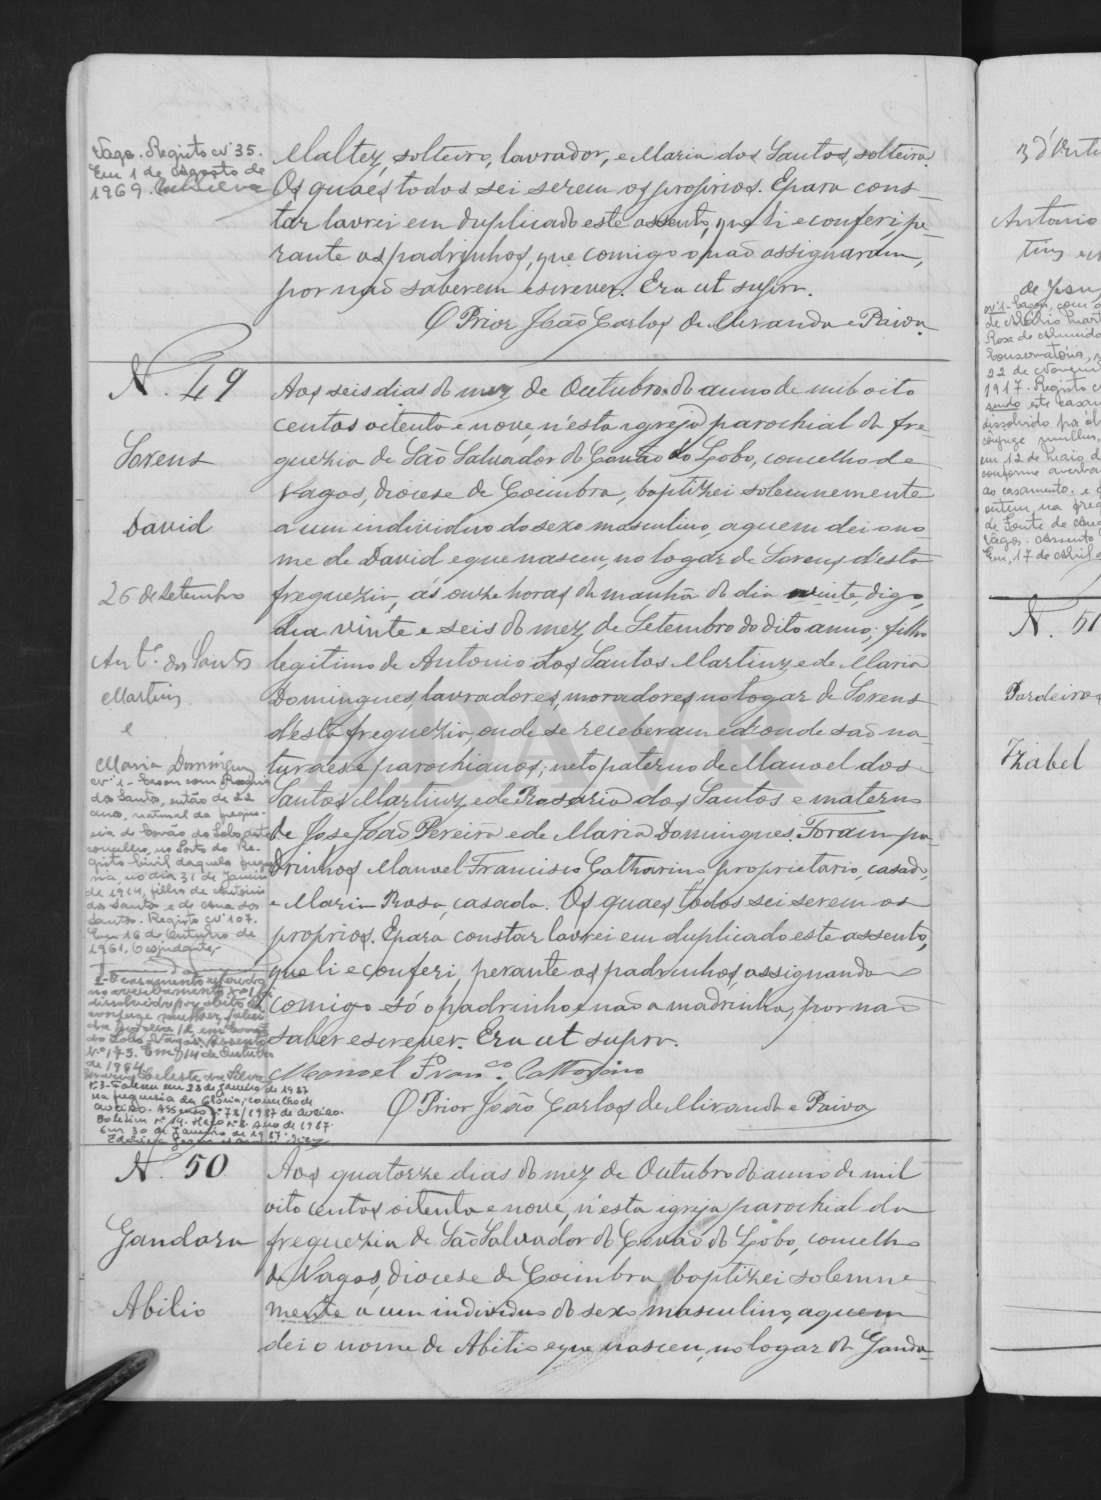 Vago. Registo nº 35.
Em 1 de Agosto de
1969.
Maltez, solteiro, lavrador, e Maria dos Santos, solteira.
Os quaes todos sei serem os proprios. E para cons-
tar lavrei em duplicado este assento, que li e conferi, pe-
rante os padrinhos, que comigo o não assignaram,
por não saberem escrever. Era ut supra.
O Prior João Carlos de Miranda e Paiva
N. 49
Sorens
David
26 de Setembro
Antº. dos Santos
Martins
e
Maria Domingues
Aos seis dias do mez de Outubro do anno de mil oito
centos oitenta e nove, n'esta igreja parochial da fre-
guezia de São Salvador do Covão do Lobo, concelho de
Vagos, diocese de Coimbra, baptizei solemnemente
a um individuo do sexo masculino, a quem dei o no-
me de David e que nasceu, no logar de Sorens d'esta
freguezia, ás onze horas da manhã do dia vinte, digo,
dia vinte e seis do mez de Setembro do dito anno; filho
legitimo de Antonio dos Santos Martins e de Maria
Domingues, lavradores, moradores no logar de Sorens
d'esta freguezia, onde se receberam e d'onde são na-
turaes e parochianos; neto paterno de Manoel dos
Santos Martins e de Rosaria dos Santos e materno
de José João Pereira e de Maria Domingues. Foram pa-
drinhos Manoel Francisco Catharino proprietario, casado,
e Maria Rosa, casada. Os quaes todos sei serem os
proprios. E para constar lavrei em duplicado este assento,
que li e conferi, perante os padrinhos, assignando
comigo só o padrinho e não a madrinha, por não
saber escrever. Era ut supra.
Manoel Franco Catharino
O Prior João Carlos de Miranda e Paiva
nº 1 - Casou com
dos Santos, então de 22
anos, natural da fregue-
sia de Covão do Lobo, deste
concelho, no Posto do Re-
gisto Civil daquela fregue-
sia, no dia 31 de Janeiro
de 1914, filha de Antonio
dos Santos e de Ana dos
Santos. Registo nº 107.
Em 16 de Outubro de
1961. O ajudante,
2 - O casamento referido
no averbamento nº 1 foi
dissolvido por óbito do
conjuge mulher,
em Covão
do Lobo, Vagos. Assento
nº 173. Em 14 de Outubro
de 1964
Celeste da Silva
nº 3 - Faleceu em 28 de Janeiro de 1987
na freguesia da Glória, concelho de
Aveiro. Assento nº 78/1987 de Aveiro.
Boletim nº 14. Maço nº 2. Ano de 1987.
Em 30 de Janeiro de 1987.
N. 50
Gandara
Abilio
Aos quatorze dias do mez de Outubro do anno de mil
oito centos oitenta e nove, n'esta igreja parochial da
freguezia de São Salvador do Covão do Lobo, concelho
de Vagos, diocese de Coimbra, baptizei solemne-
mente a um individuo do sexo masculino, a quem
dei o nome de Abilio e que nasceu, no logar da Ganda-
3 d'Outu
Antonio
tins
de Jesus
nº 1 - Casou, com
Rosa de
Conservatória,
22 de Novem
1917. Registo
sendo este casam
dissolvido por ób
conjuge mulher,
em 12 de Maio d
conforme averba
ao casamento. e
ontem, na freg
de Fonte de
Vagos. Assento
Em, 17 de Abril
N. 51
Pardeiros
Izabel
ADAVR